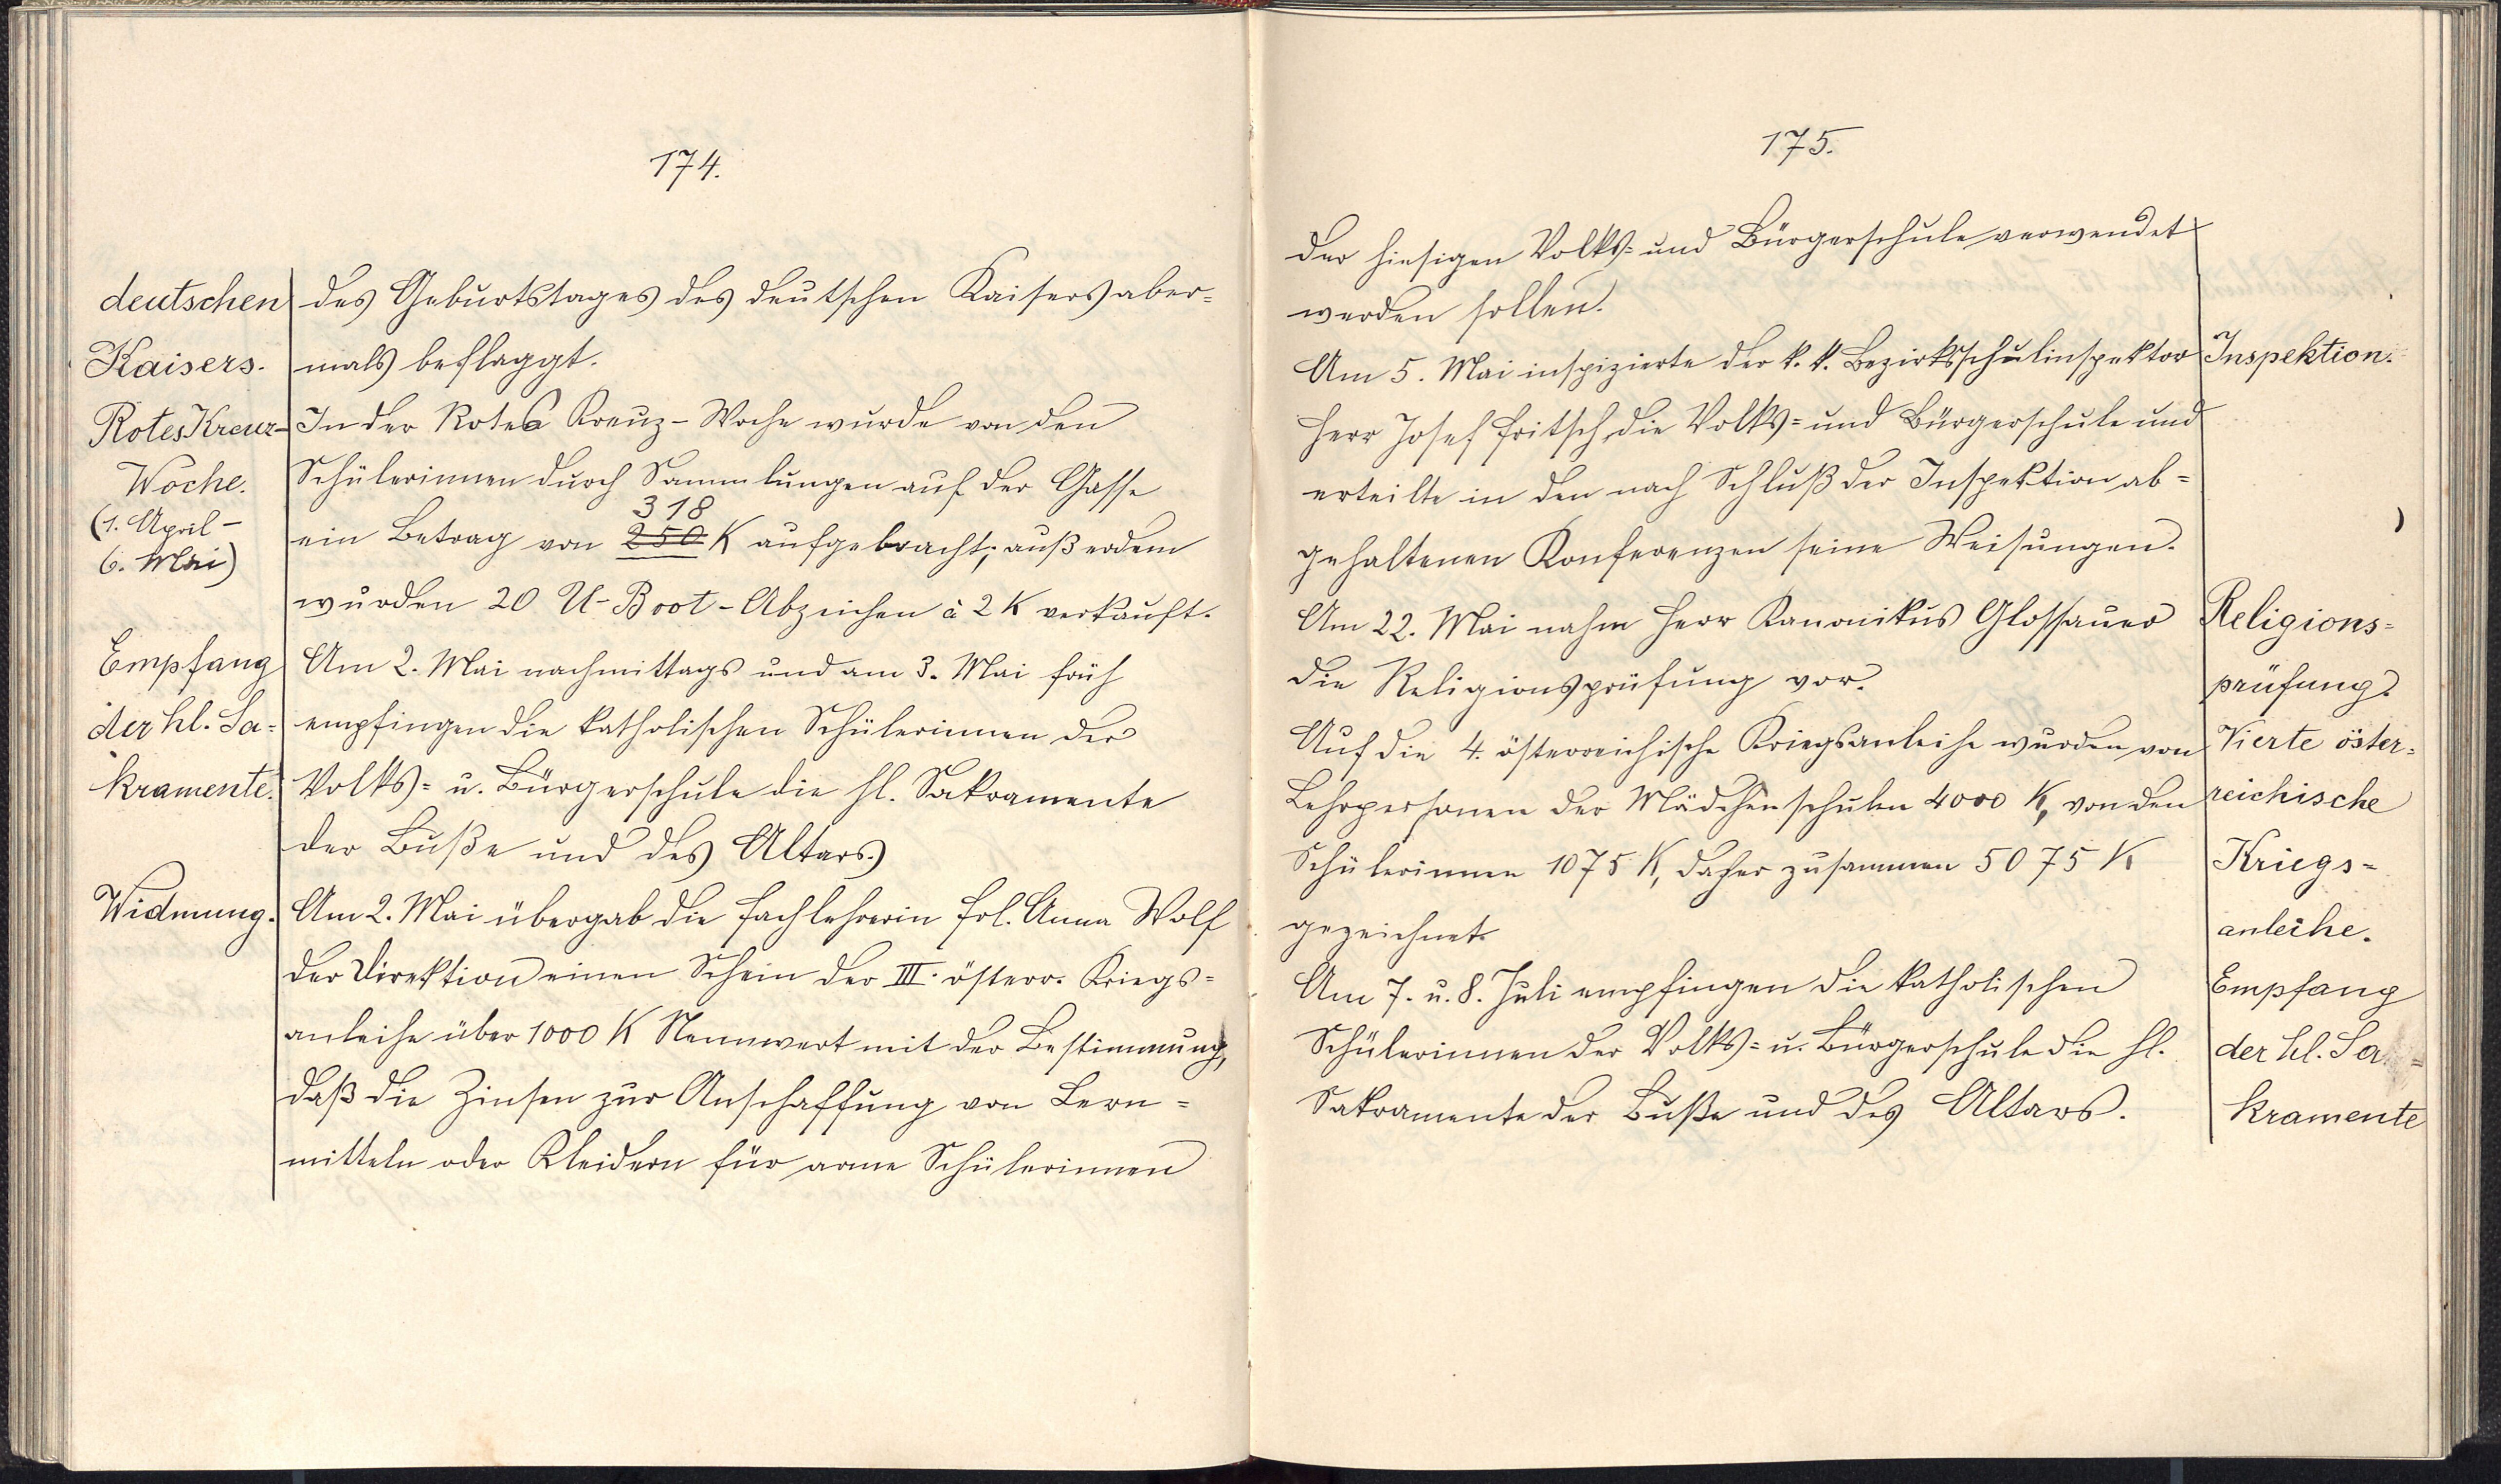 174.
deutschen
Kaisers.
Rotes Kreuz-
Woche.
(1. April -
6. Mai)
Empfang
der hl. Sa=
kramente.
Widmung.
des Geburtstages des deutschen Kaisers aber=
mals beflaggt.
In der Rotes Kreuz-Woche wurde von den
Schülerinnen durch Sammlungen auf der Gasse
318
ein Betrag von 250 K aufgebracht; außerdem
wurden 20 U-Boot-Abzeichen à 2 K verkauft.
Am 2. Mai nachmittags und am 3. Mai früh
empfingen die katholischen Schülerinnen der
Volks= u. Bürgerschule die hl. Sakramente
der Buße und des Altars.
Am 2. Mai übergab die Fachlehrerin Frl. Anna Wolf
der Direktion einen Schein der III. österr. Kriegs=
anleihe über 1000 K Nennwert mit der Bestimmung,
daß die Zinsen zur Anschaffung von Lern=
mitteln oder Kleidern für arme Schülerinnen
175.
der hiesigen Volks= und Bürgerschule verwendet
werden sollen.
Am 5. Mai inspizierte der k. k. Bezirksschulinspektor
Herr Josef Fritsch die Volks= und Bürgerschule und
erteilte in den nach Schluß der Inspektion ab=
gehaltenen Konferenzen seine Weisungen.
Am 22. Mai nahm Herr Kanonikus Glossauer
die Religionsprüfung vor.
Auf die 4. österreichische Kriegsanleihe wurden von
Lehrpersonen der Mädchenschulen 4000 K, von den
Schülerinnen 1075 K, daher zusammen 5075 K
gezeichnet.
Am 7. u. 8. Juli empfingen die katholischen
Schülerinnen der Volks= u. Bürgerschule die hl.
Sakramente der Buße und des Altars.
Inspektion.
Religions=
prüfung.
Vierte öster=
reichische
Kriegs=
anleihe.
Empfang
der hl. Sa=
kramente